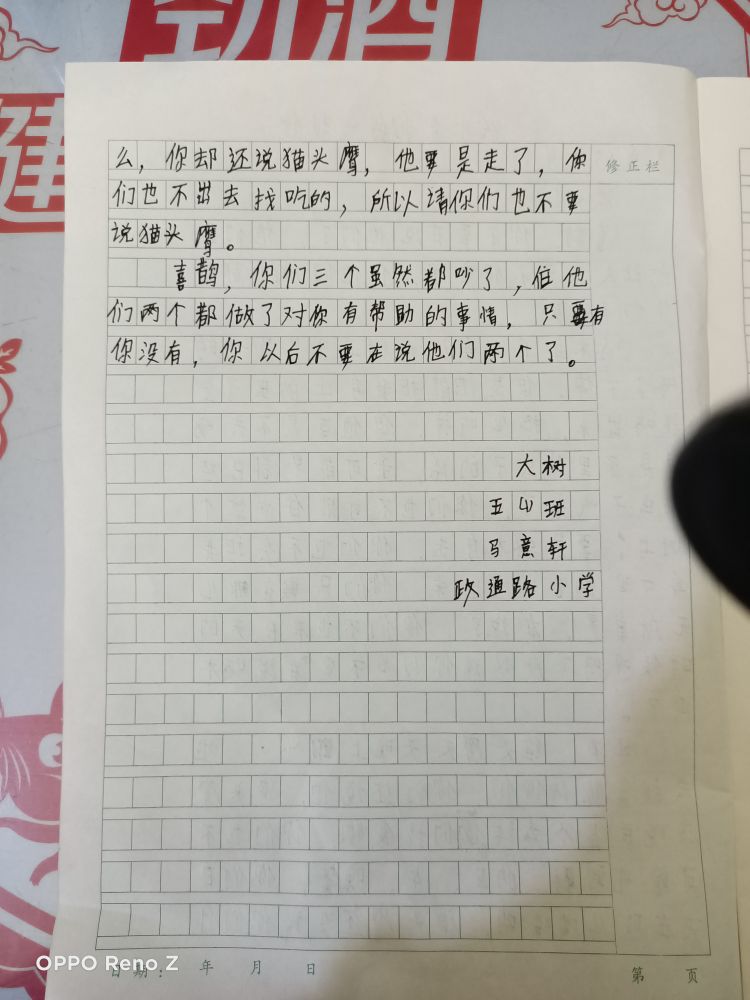 劲酒
健
修正栏
么，你却还说猫头鹰，他要是走了，你
们也不出去找吃的，所以请你们也不要
说猫头鹰。
喜鹊，你们三个虽然都吵了，但他
们两个都做了对你有帮助的事情，只要有
你没有，你以后不要在说他们两个了。
大树
五(4)班
马意轩
政通路小学
日期： 年 月 日
第 页
OPPO Reno Z